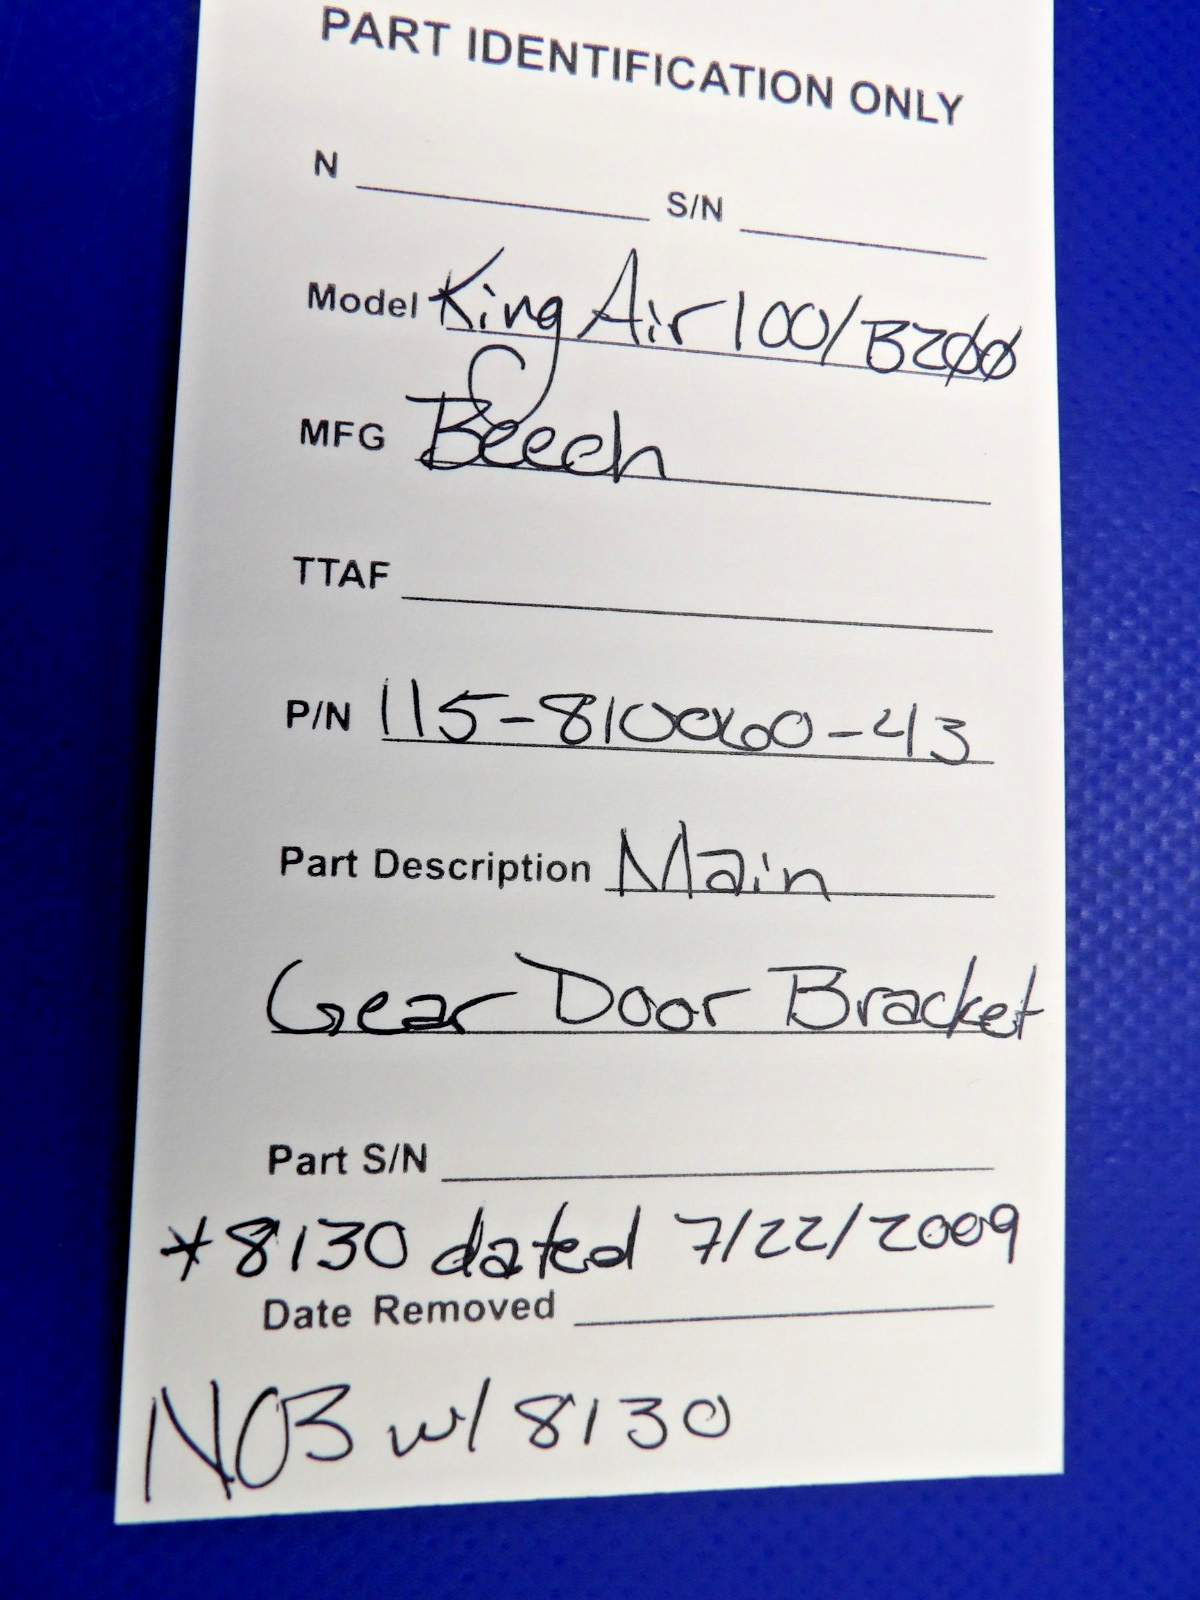 PART IDENTIFICATION ONLY
N ________ S/N ________
Model King Air 100/B200
MFG Beech
TTAF ________
P/N 115-810060-43
Part Description Main
Gear Door Bracket
Part S/N ________
*8130 dated 7/22/2009
Date Removed ________
NOB w/ 8130